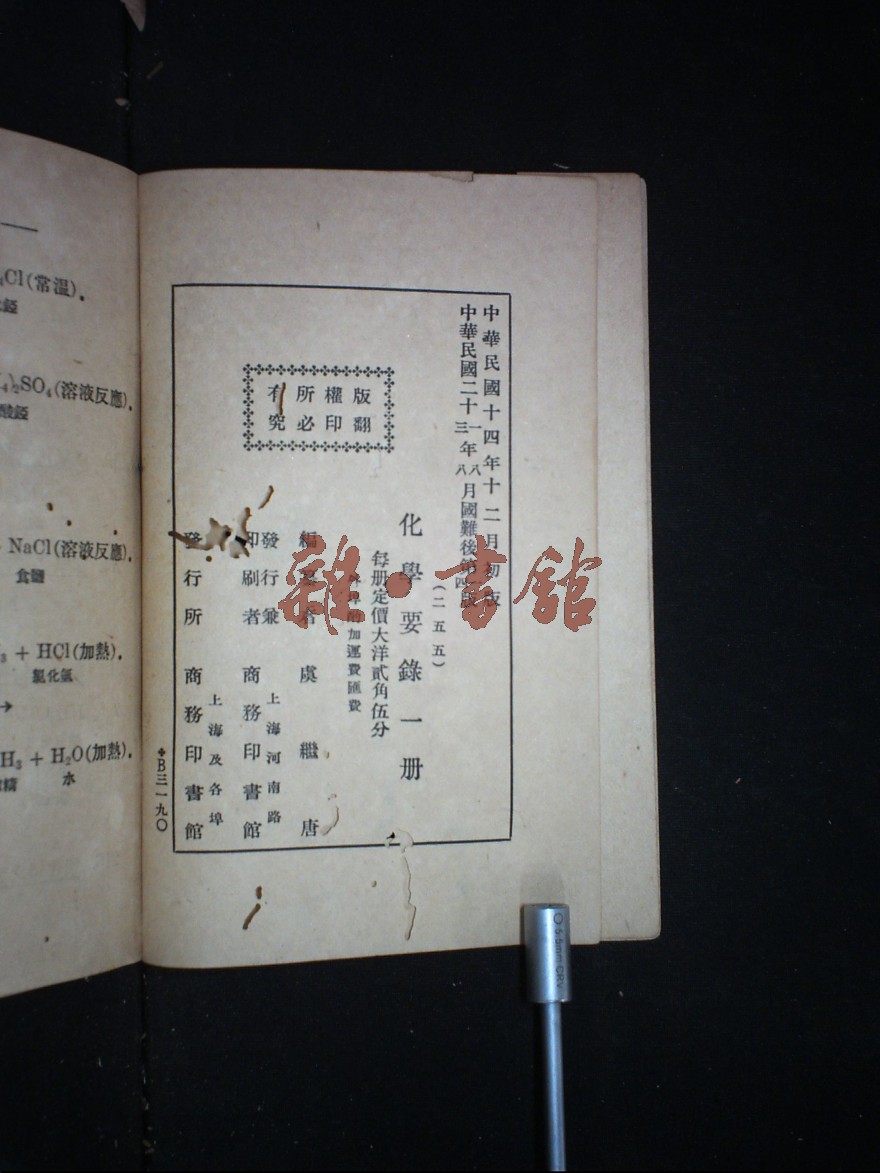 Cl(常溫).
SO₄(溶液反應).
NaCl(溶液反應).
食鹽
+ HCl(加熱).
氯化氫
→
H₃ + H₂O(加熱).
水
中華民國十四年十二月初版
中華民國二十一三年八八月國難後第四版
(二五五)
化學要錄一册
每册定價大洋貳角伍分
外埠酌加運費匯費
版權所有
翻印必究
編纂者 虞繼唐
發行兼印刷者 上海河南路 商務印書館
發行所 上海及各埠 商務印書館
B三一九〇
雜·書館
5.5mm CRV